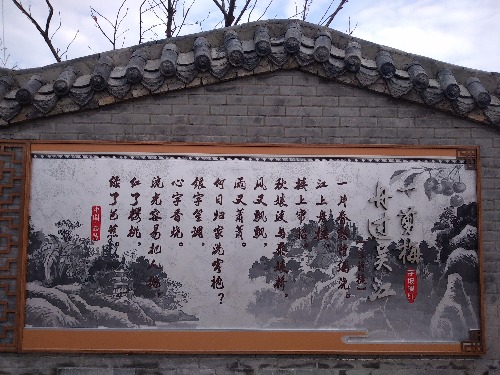 一剪梅
舟过吴江
一片春愁待酒浇。
江上舟摇,
楼上帘招。
秋娘渡与泰娘桥,
风又飘飘,
雨又萧萧。
何日归家洗客袍?
银字笙调,
心字香烧。
流光容易把人抛,
红了樱桃,
绿了芭蕉。